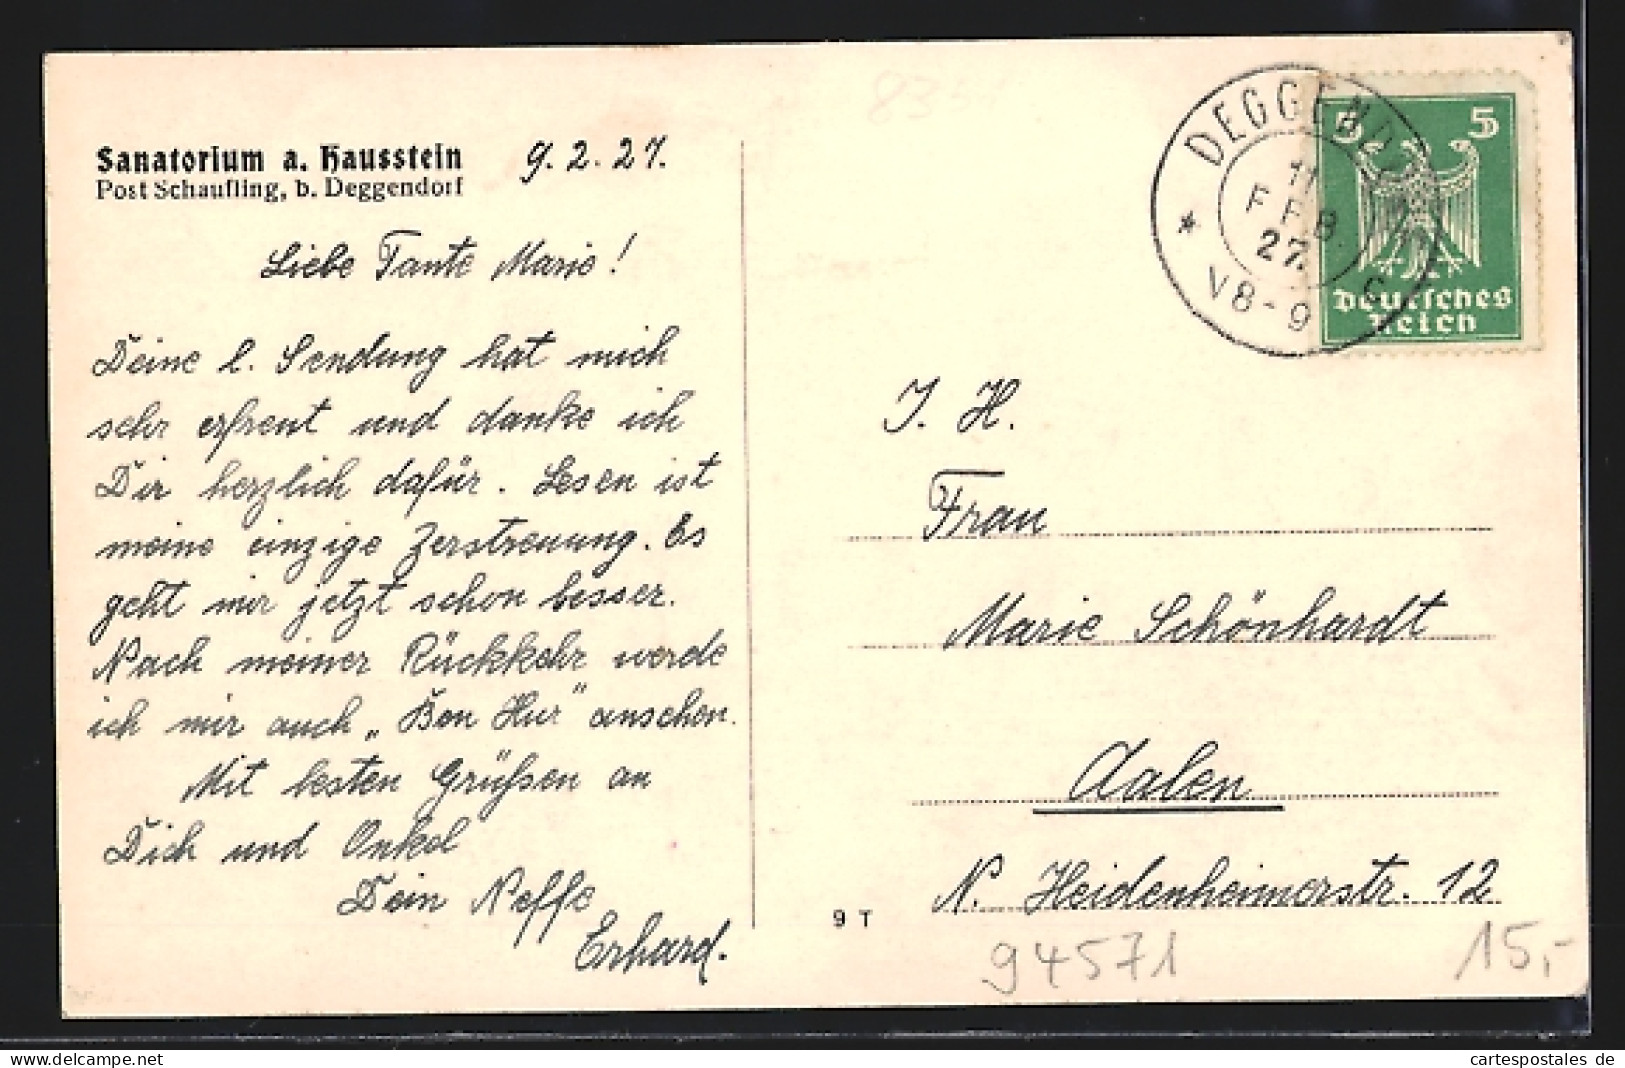 Sanatorium a. Hausstein
Post Schaufling, b. Deggendorf
9.2.27.
Liebe Tante Marie!
Deine l. Sendung hat mich
sehr erfreut und danke ich
Dir herzlich dafür. Lesen ist
meine einzige Zerstreuung. Es
geht mir jetzt schon besser.
Nach meiner Rückkehr werde
ich mir auch „Ben Hur" ansehen.
Mit besten Grüßen an
Dich und Onkel
Dein Neffe
Erhard.
DEGGENDORF
11
FEB.
27.
V8-9
5
5
Deutsches
Reich
I. H.
Frau
Marie Schönhardt
Aalen
N. Heidenheimerstr. 12
9 T
94571
15,-
delcampe.net
cartespostales de